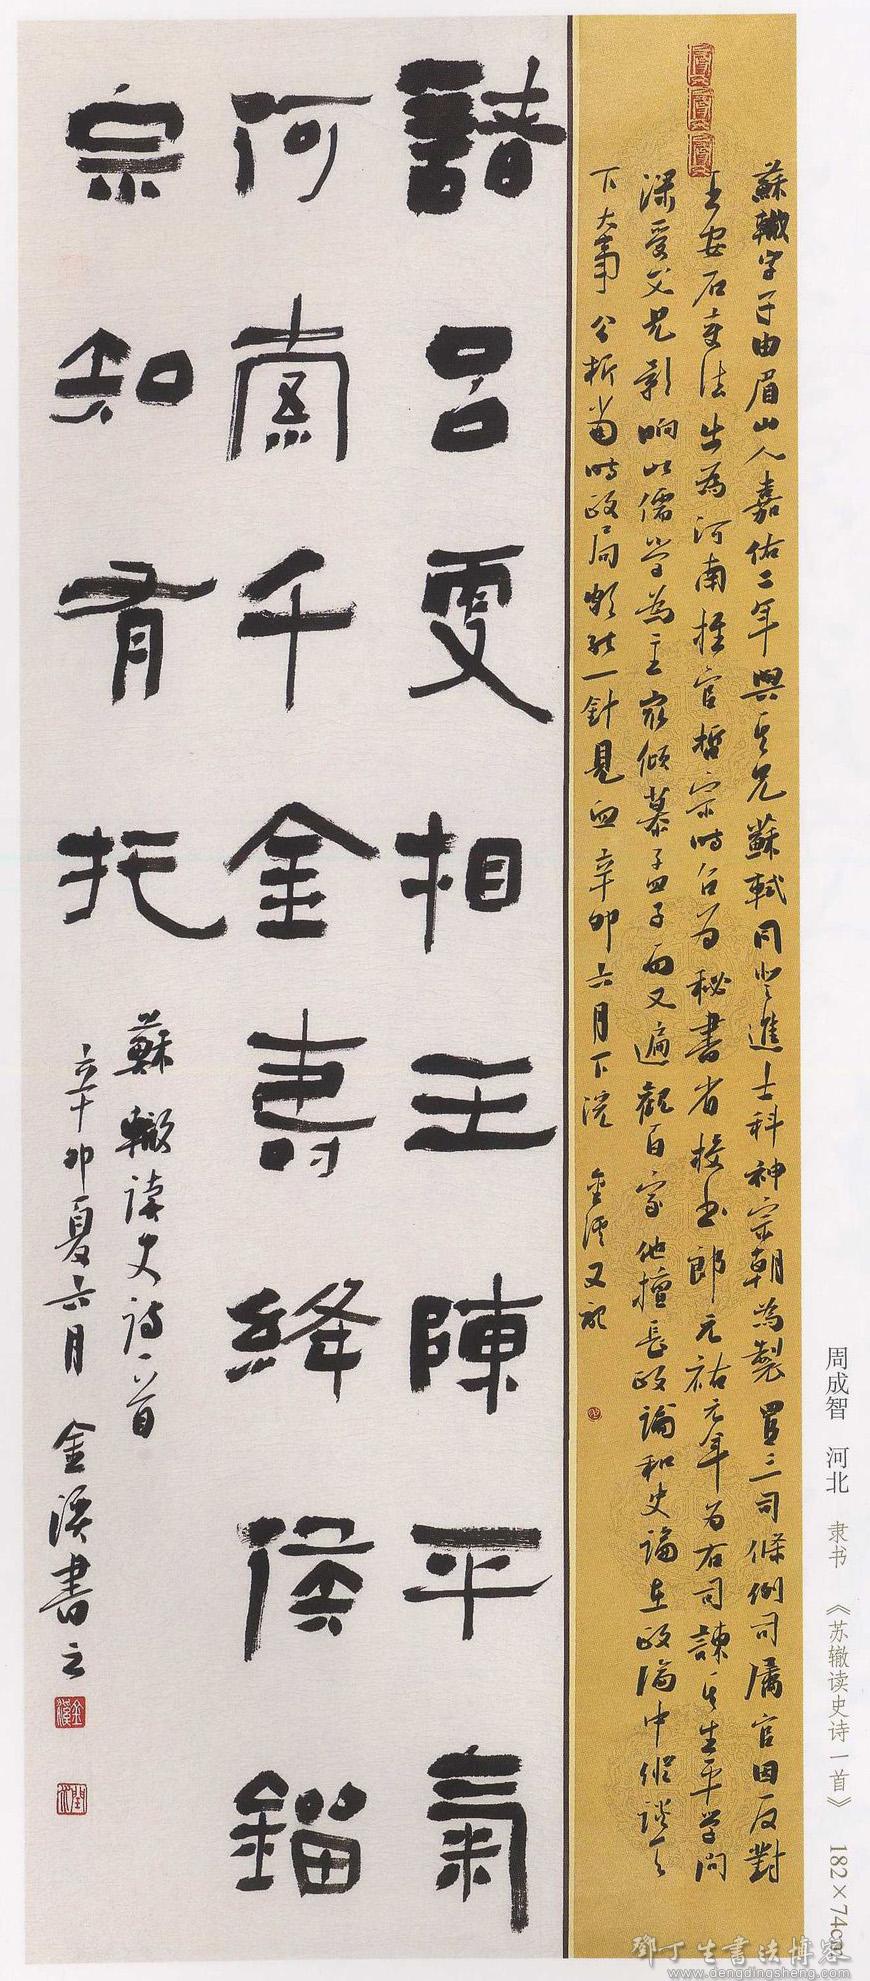 蘇轍字子由眉山人嘉佑二年與其兄蘇軾同登進士科神宗朝為製置三司條例司屬官因反對
王安石变法出為河南推官哲宗時召为秘書省校书郎元祐元年为右司諫其生平学问
深受父兄影响以儒学為主最倾慕孟子而又遍觀百家他擅長政論和史論在政論中纵談天
下大事分析當時政局颇能一針見血辛卯六月下浣 金溪又記
諸呂更相王陳平氣
何索千金壽絳侯鎦
宗知有托
蘇轍读史诗一首
辛卯夏六月 金溪書之
金溪
周成智 河北 隶书 《苏辙读史诗一首》 182×74cm
鄧丁生書法博客
www.dengdingsheng.com